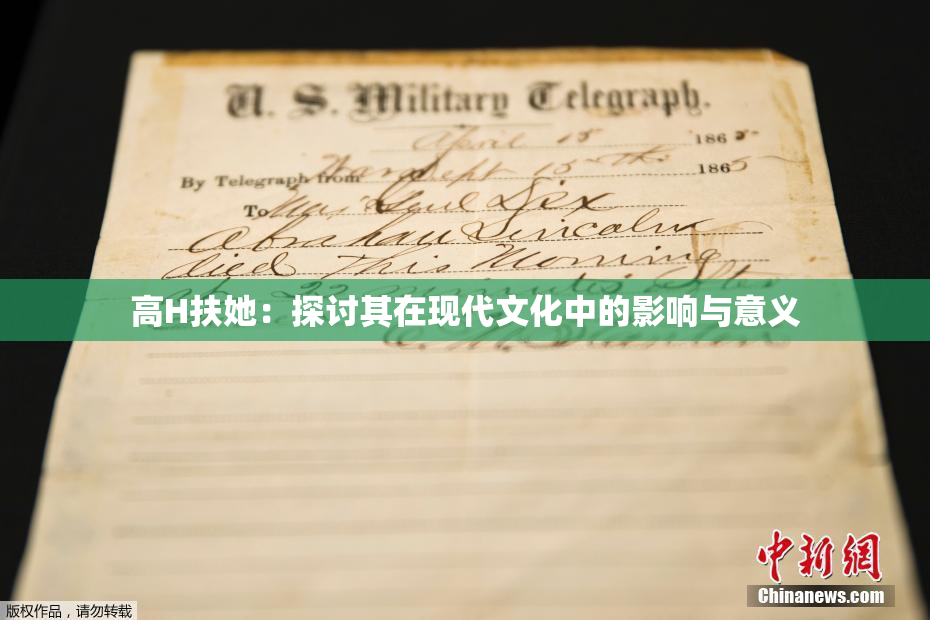 U. S. Military Telegraph.
April 15 1865
By Telegraph from War Dept 15th 1865
To Maj Genl Dix
Abraham Lincoln
died This Morning
at 22 minutes after
高H扶她：探讨其在现代文化中的影响与意义
E. M. Stanton
中新網
Chinanews.com
版权作品，请勿转载